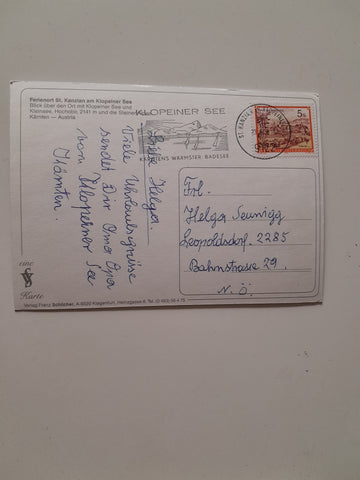 Ferienort St. Kanzian am Klopeiner See
Blick über den Ort mit Klopeiner See und
Kleinsee, Hochobir, 2141 m und die Steiner
Kärnten — Austria
KLOPEINER SEE
KÄRNTENS WÄRMSTER BADESEE
ST. KANZIAN
5 S
Liebe Helga.
Viele Urlaubsgrüsse
sendet Dir Oma Opa
vom Klopeiner See
Kärnten.
Frl.
Helga
Leopoldsdorf. 2285
Bahnstrasse 29.
N.Ö.
eine
Karte
Verlag Franz Schilcher, A-9020 Klagenfurt,